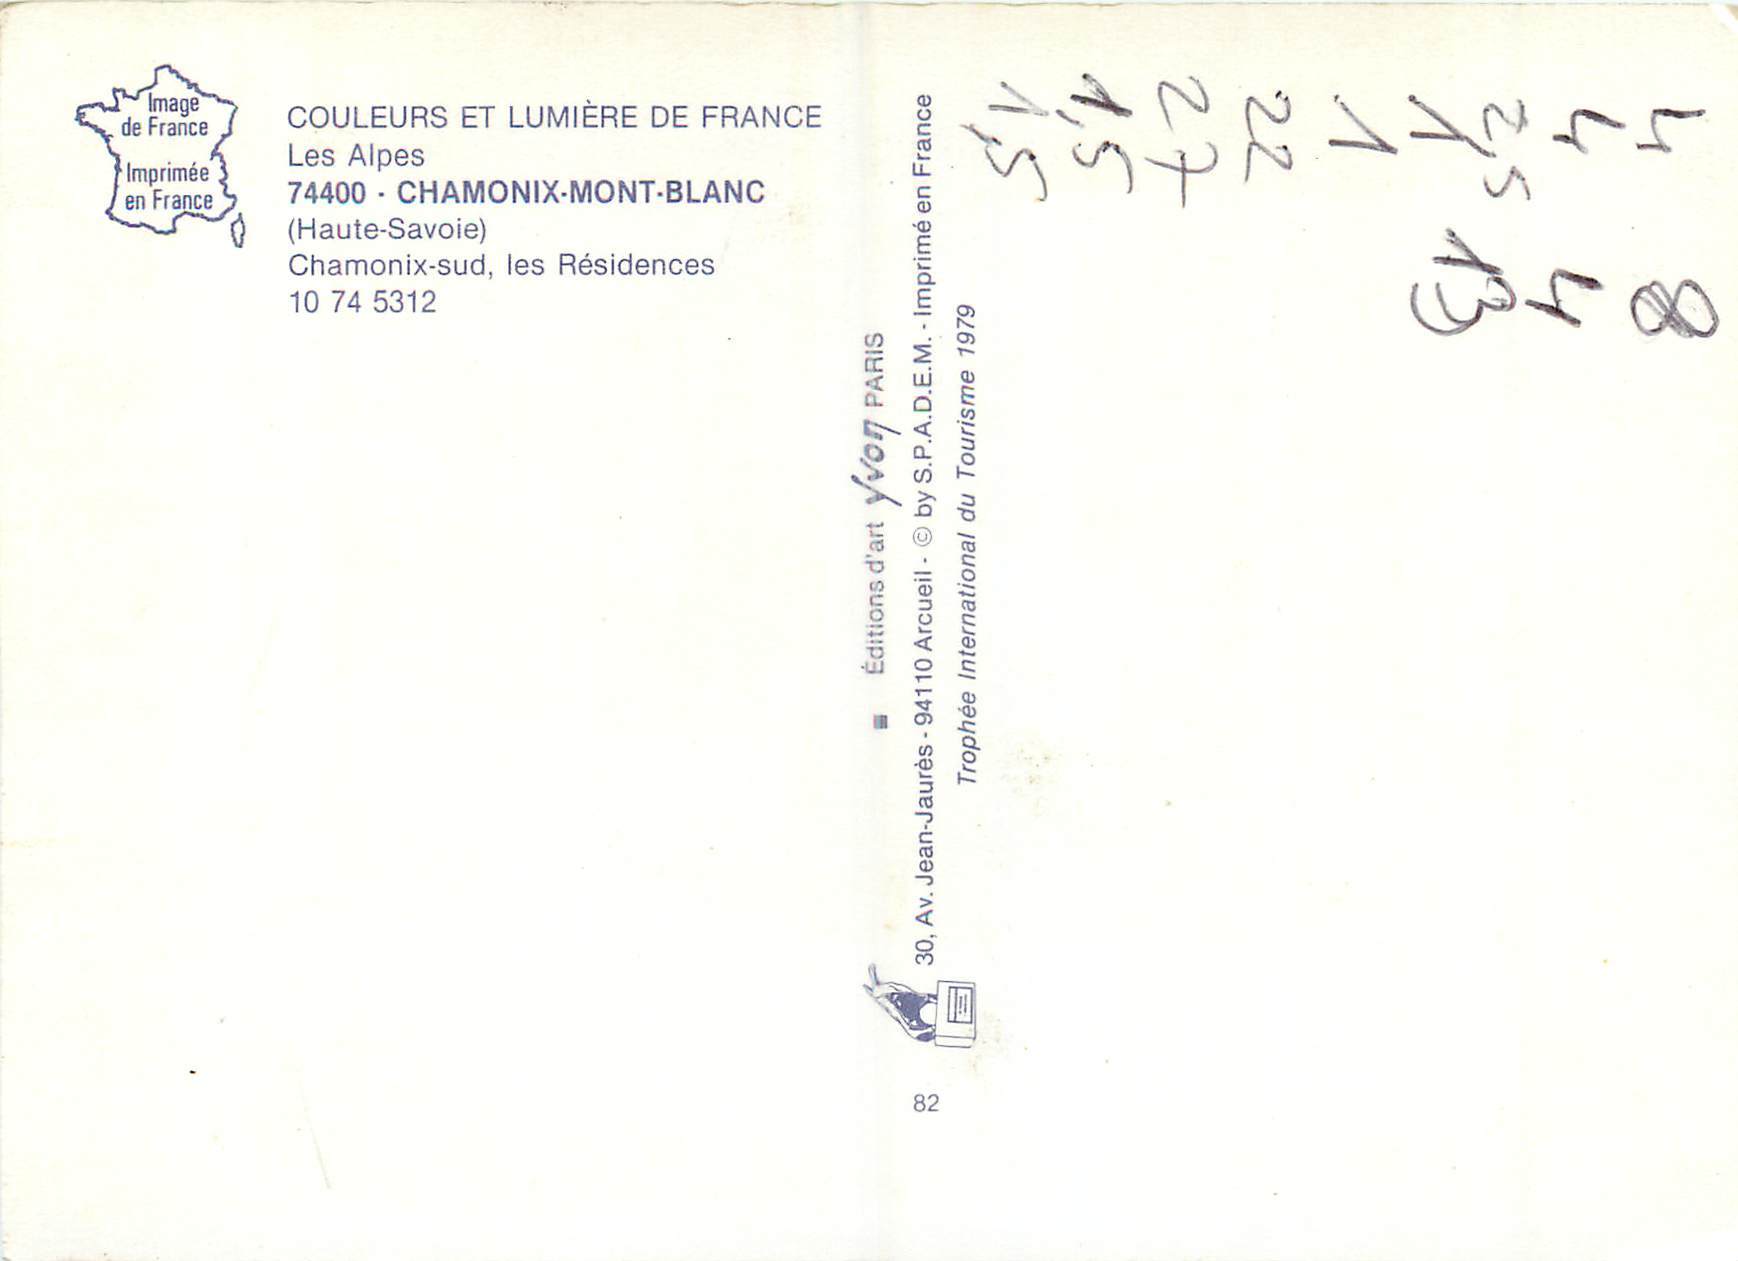 Image
de France
Imprimée
en France
COULEURS ET LUMIÈRE DE FRANCE
Les Alpes
74400 - CHAMONIX-MONT-BLANC
(Haute-Savoie)
Chamonix-sud, les Résidences
10 74 5312
■ Éditions d'art yvon PARIS
30, Av. Jean-Jaurès - 94110 Arcueil - © by S.P.A.D.E.M. - Imprimé en France
Trophée International du Tourisme 1979
82
4 8
4 4
25
11 13
1
22
27
1,5
1,5